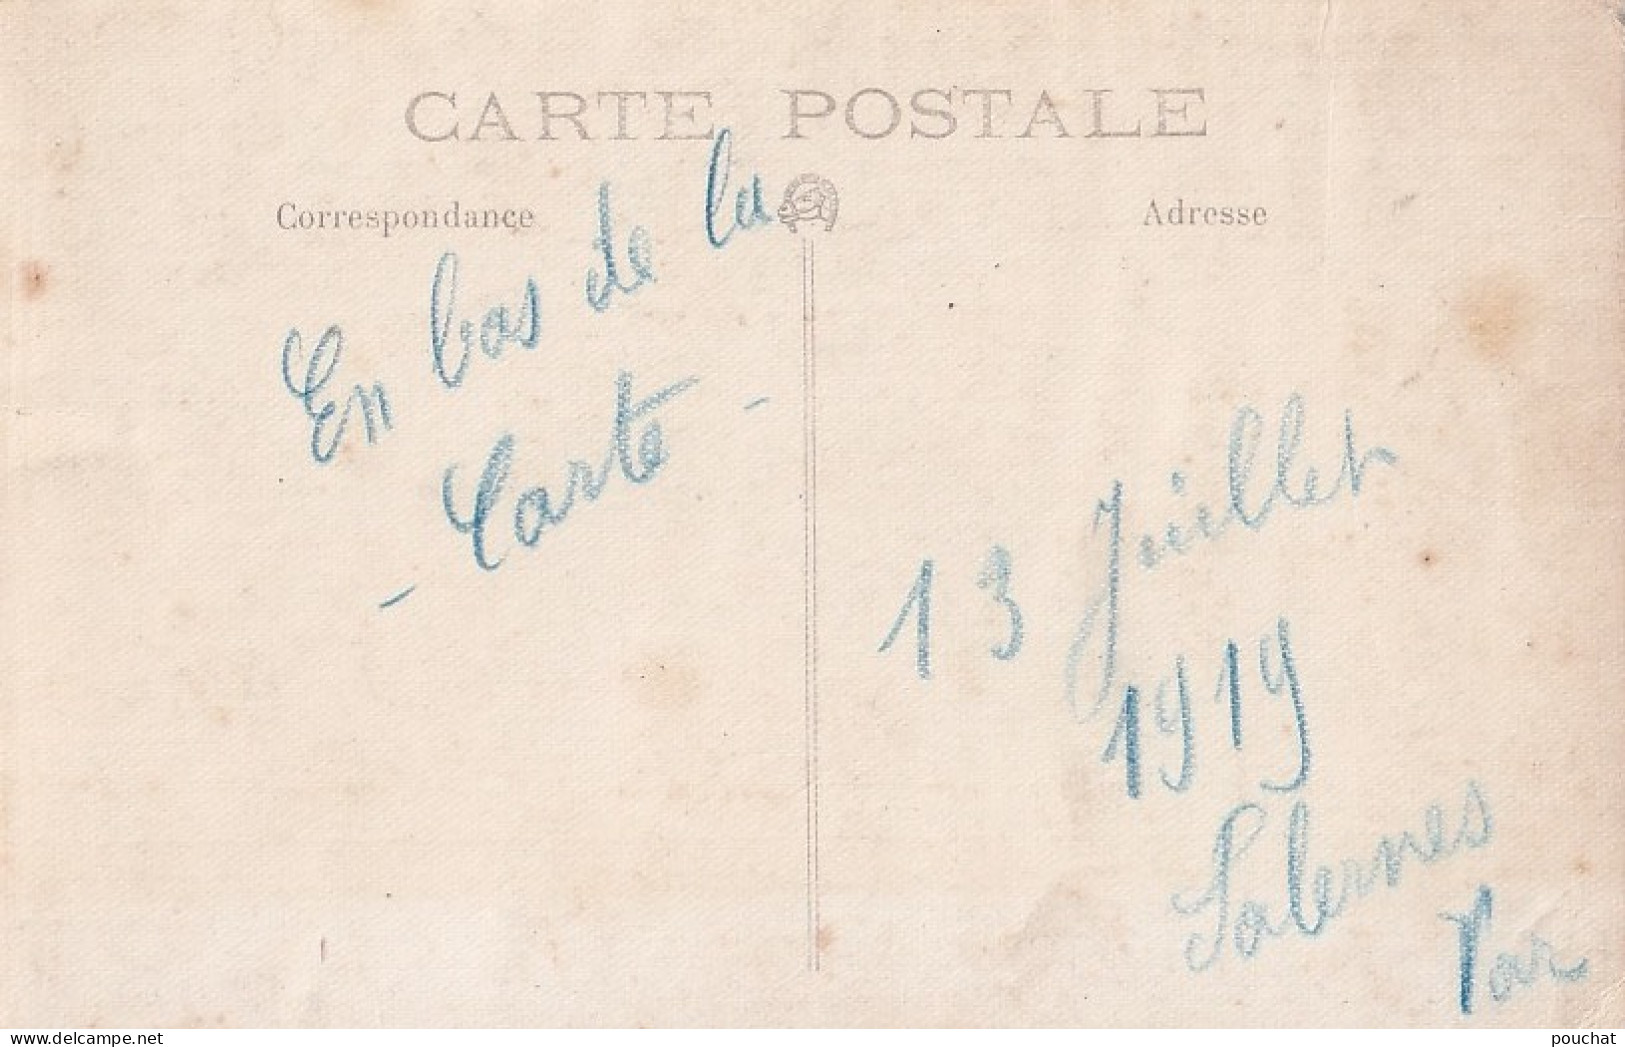 CARTE POSTALE
Correspondance
Adresse
En bas de la
- Carte -
13 Juillet
1919
Salernes
Var
delcampe.net
pouchat